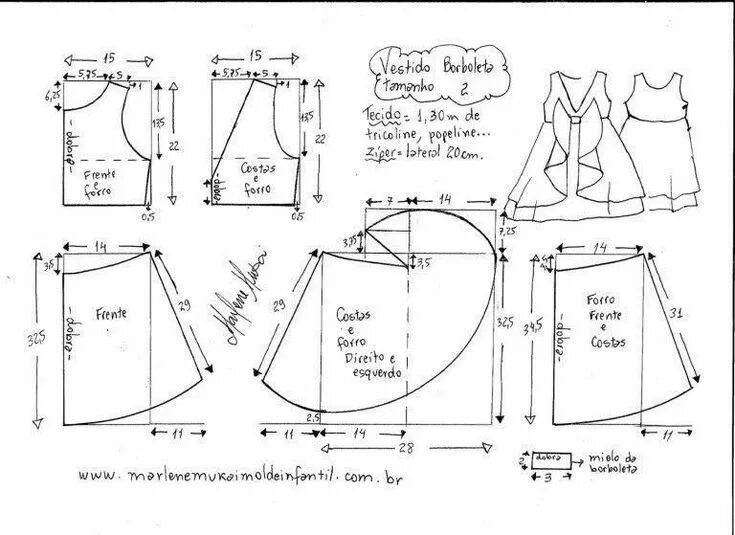 Vestido Borboleta
tamanho 2
Tecido = 1,30m de
tricoline, popeline...
Zíper = lateral 20cm.
15
5,75
5
1
6,25
-dobra-
13,5
22
Frente
e
forro
0,5
15
5,75
5
1
13,5
22
-dobra-
Costas
e
forro
0,5
14
3,5
32,5
-dobra-
Frente
29
11
Marlene Mukai
7
14
3,75
3,5
7,25
29
Costas
e
forro
Direito e
esquerdo
32,5
2,5
11
14
28
14
34,5
-dobra-
Forro
Frente
e
Costas
31
11
2
dobra
3
miolo da
borboleta
www.marlenemukaimoldeinfantil.com.br